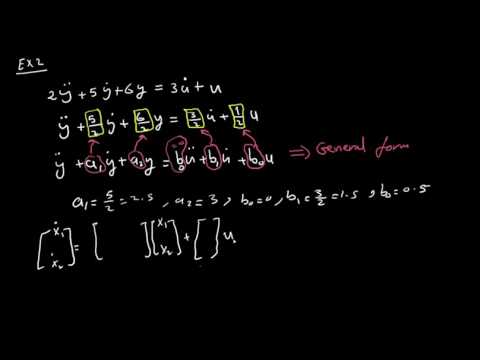 EX2
2ÿ+5ẏ+6y = 3u̇+u
ÿ+5/2 ẏ+6/2 y = 3/2 u̇+1/2 u
ÿ+a₁ẏ+a₂y = b₀ü+b₁u̇+b₀u ⇒ General form
a₁=5/2=2.5, a₂=3, b₀=0, b₁=3/2=1.5, b₀=0.5
[ẋ₁ ẋ₂]=[ ][x₁ x₂]+[ ]u